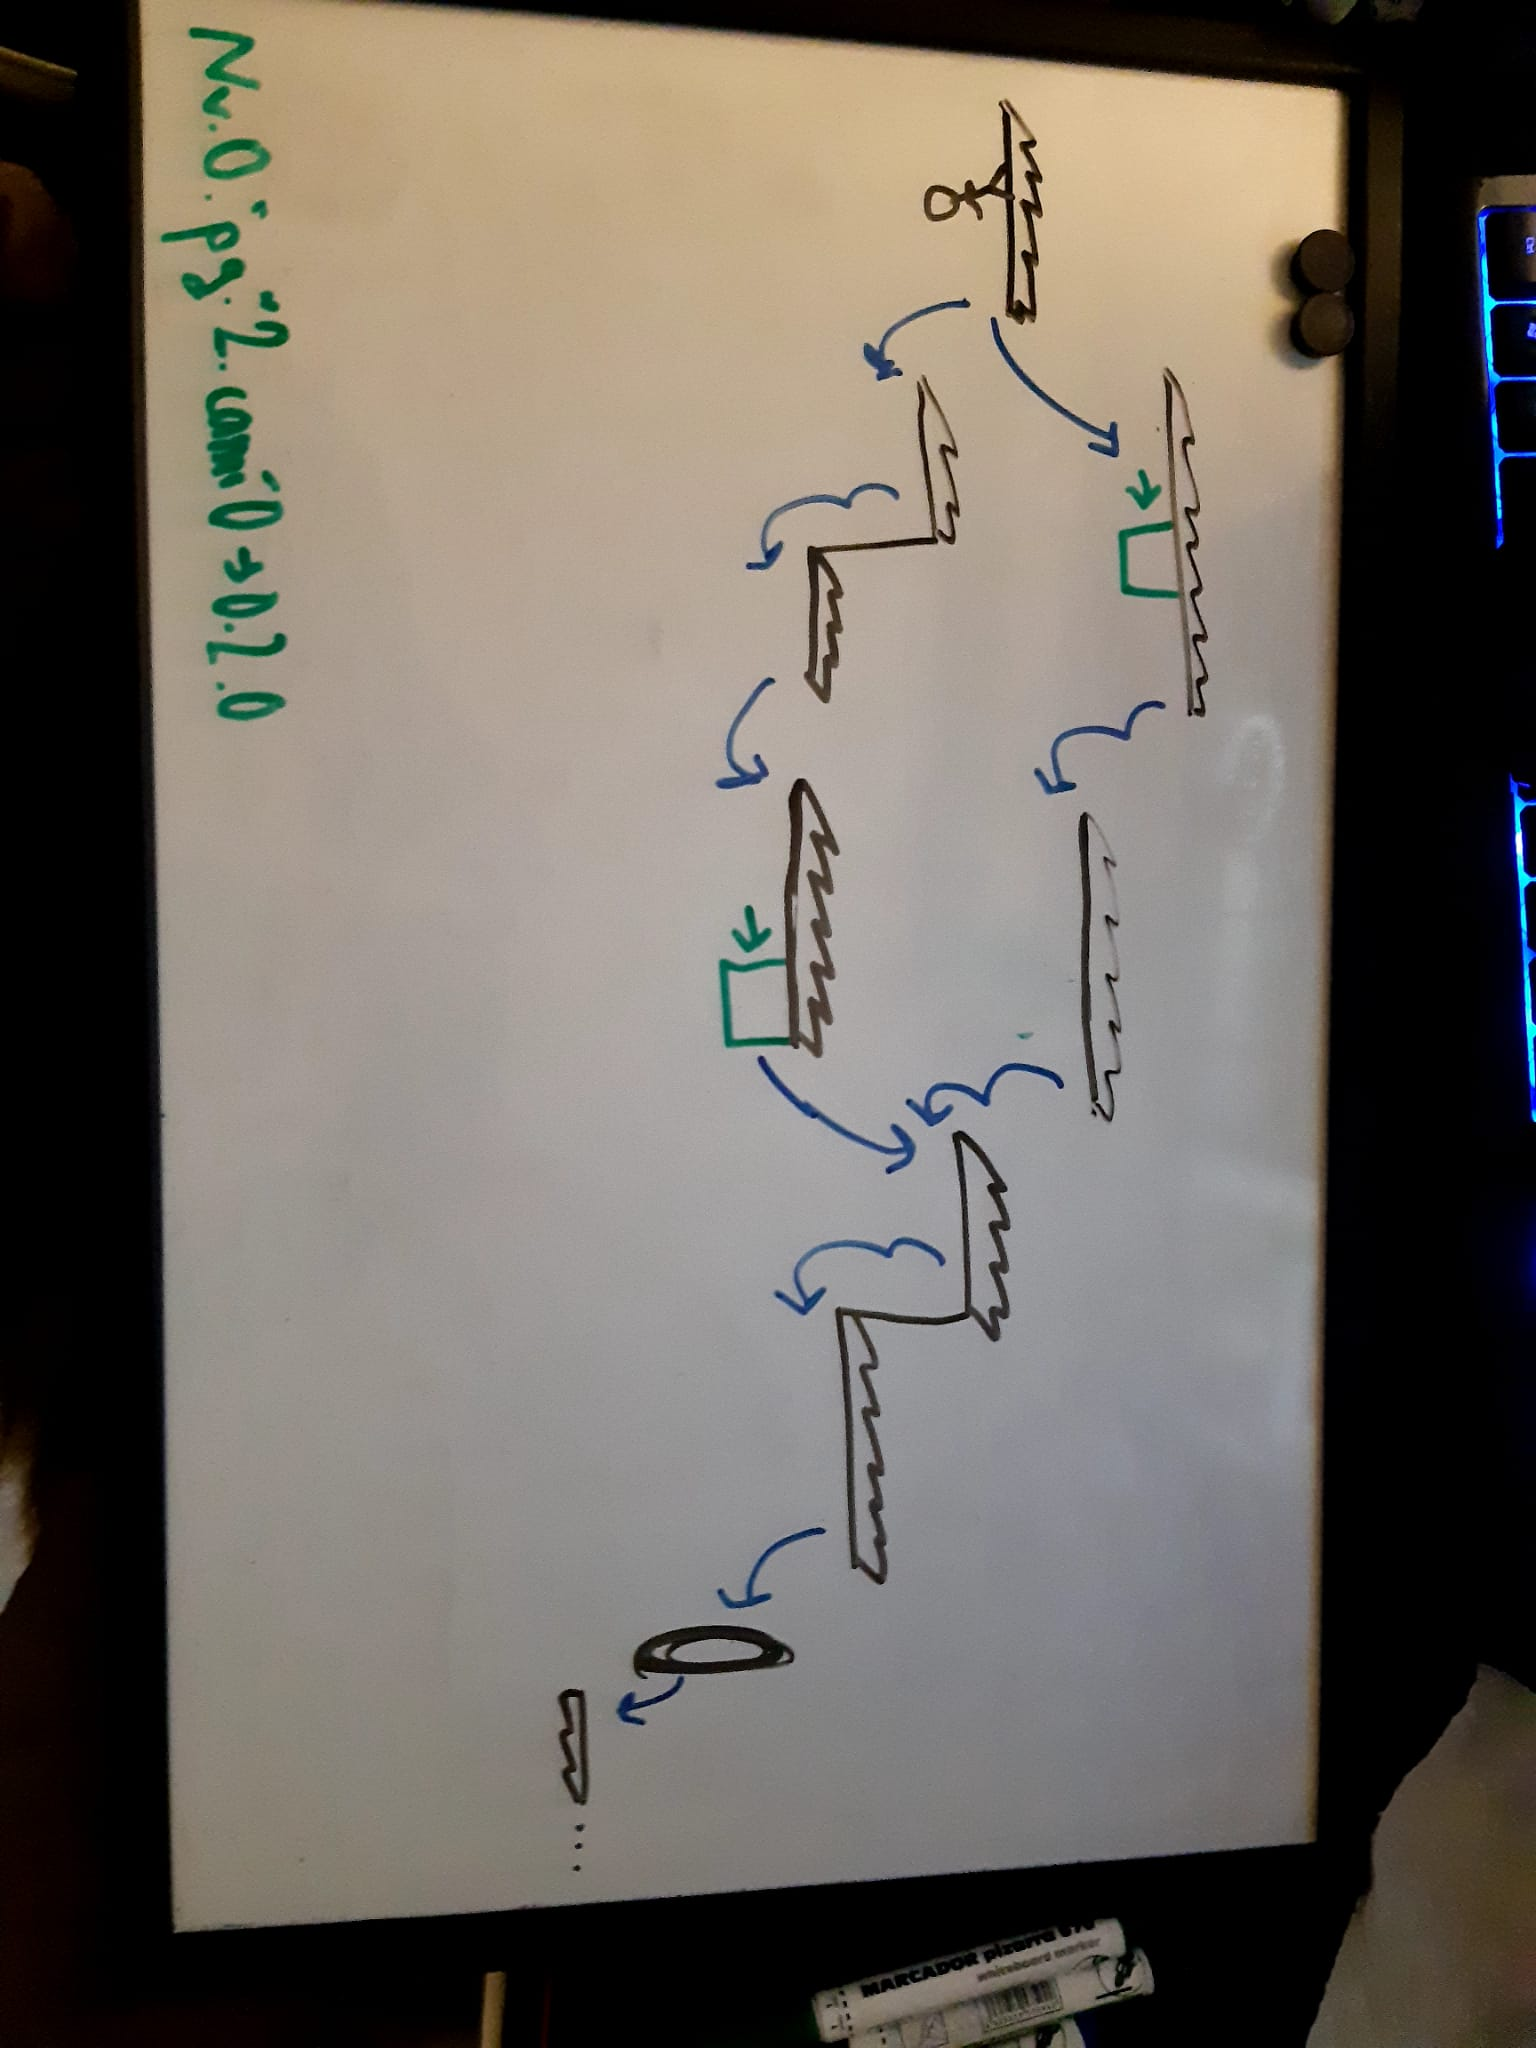 Nv.0."pg."2.cami0→0.2.0
MARCADOR pizarra
whiteboard marker